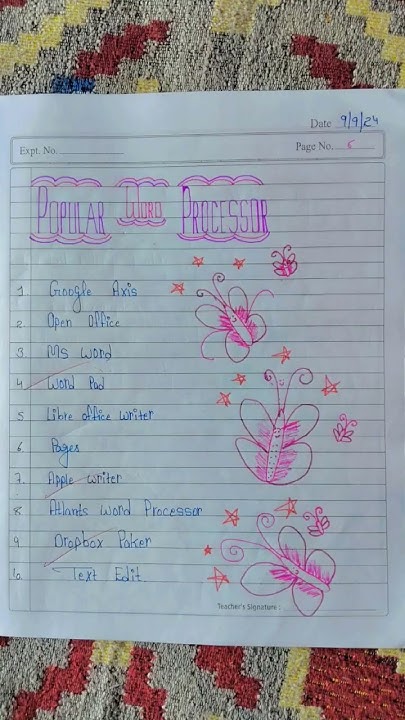 Date 9/9/24
Expt. No.
Page No. 5
POPULAR WORD PROCESSOR
1. Google Axis
2. Open Office
3. MS Word
4. Word Pad
5. Libre office writer
6. Pages
7. Apple writer
8. Atlants Word Processor
9. Dropbox Paker
10. Text Edit
Teacher's Signature :